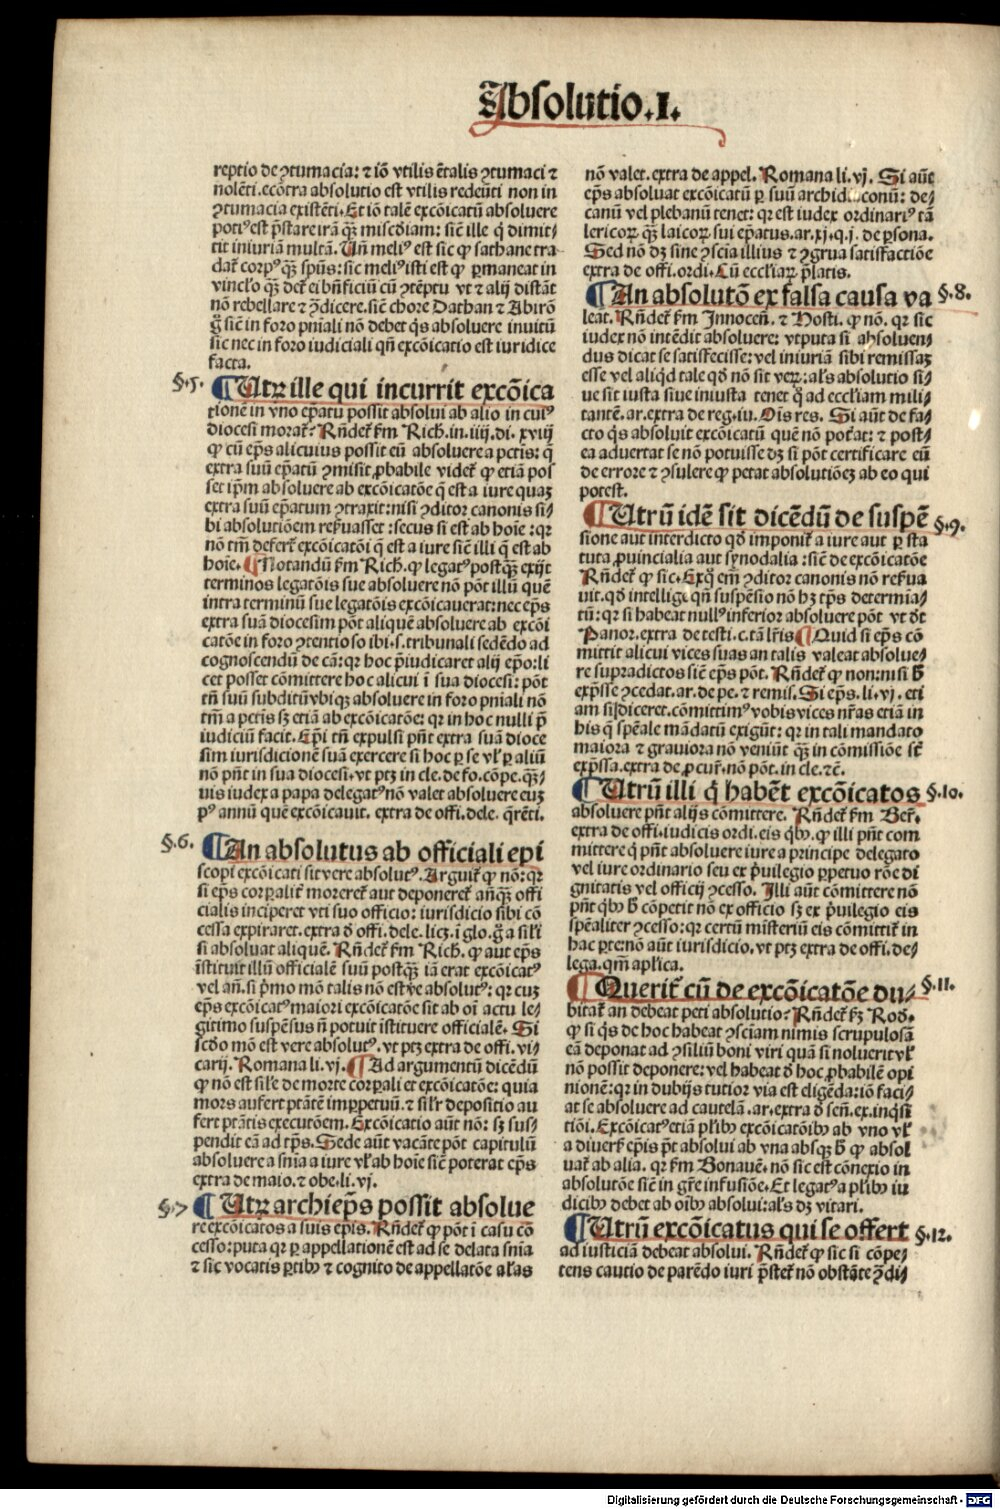 Absolutio.I.
reptio de ꝯtumacia: ⁊ iō vtilis ētalis ꝯtumaci ⁊
nolēti.ecōtra absolutio est vtilis redeūti non in
ꝯtumacia existēti. Et iō talē excōicatū absoluere
potiꝰ est p̄stare irā q̄ꝫ misc̄diam: sic̄ ille q̄ dimit⸗
tit iniuriā multā. Un̄ meliꝰ est sic ꝙ sathane tra
dat̄ corpꝰ q̄ꝫ spūs: sic meliꝰ isti est ꝙ ꝑmaneat in
vinc̄lo q̄ꝫ det̄ ei bn̄ficiū cū ꝯtēptu vt ⁊ alij distāt
nō rebellare ⁊ ꝯ̄dicere. sic̄ chore Dathan ⁊ Abirō
ḡ sic̄ in foro pn̄iali nō debet q̄s absoluere inuitū
sic nec in foro iudiciali qn̄ excōicatio est iuridice
facta.
§.5. ¶ Utꝝ ille qui incurrit excōica
tionē in vno ep̄atu possit absolui ab alio in cuiꝰ
diocesi morat̄? Rn̄det̄ ẜm Rich. in .iiij. di. xviij
ꝙ cū ep̄s alicuius possit eū absoluere a pctis: q̄
extra suū ep̄atū ꝯmisit ꝓbabile videt̄ ꝙ etiā pos
set ip̄m absoluere ab excōicatōe q̄ est a iure quaꝫ
extra suū ep̄atum ꝯtraxit: nisi ꝯditor canonis si⸗
bi absolutiōem reẜuasset: secus si est ab hoīe: qꝛ
nō tm̄ defert̄ excōicatōi q̄ est a iure sic̄ illi q̄ est ab
hoīe. ¶ Notandū ẜm Rich. ꝙ legatꝰ postq̄ꝫ exijt
terminos legatōis sue absoluere nō pōt illū quē
intra terminū sue legatōis excōicauerat: nec ep̄s
extra suā diocesim pōt aliquē absoluere ab excōi
catōe in foro ꝯtentioso ibi .s. tribunali sedēdo ad
cognoscendū de cā: qꝛ hoc p̄iudicaret alij ep̄o: li
cet posset cōmittere hoc alicui ī sua diocesi: pōt
tn̄ suū subditū vbiqꝫ absoluere in foro pn̄iali nō
tm̄ a pctis sꝫ etiā ab excōicatōe: qꝛ in hoc nulli p̄
iudiciū facit. Ep̄i tn̄ expulsi pn̄t extra suā dioce
sim iurisdictionē suā exercere si hoc ꝑ se vl̓ ꝑ aliū
nō pn̄t in sua diocesi. vt ptꝫ in cle. de fo. cōpe. q̄ꝫ⸗
uis iudex a papa delegatꝰ nō valet absoluere euꝫ
pꝰ annū quē excōicauit. extra de offi. dele. q̄rēti.
§.6. ¶ An absolutus ab officiali epi
scopi excōicati sit vere absolutꝰ. Arguit̄ ꝙ nō: qꝛ
si ep̄s corꝑalit̓ moreret̄ aut deponeret̄ an̄q̄ꝫ offi
cialis inciperet vti suo officio: iurisdicio sibi cō
cessa expiraret. extra đ offi. dele. licꝫ. ī glo. ḡ a sil̓i
si absoluat aliquē. Rn̄det̄ ẜm Rich. ꝙ aut ep̄s
īstituit illū officialē suū postq̄ꝫ iā erat excōicatꝰ
vel an̄. si p̄mo mō talis nō est v̄e absolutꝰ: qꝛ cuꝫ
ep̄s excōicatꝰ maiori excōicatōe sit ab oī actu le⸗
gitimo suspēsus n̄ potuit īstituere officialē. Si
scđo mō est vere absolutꝰ. vt ptꝫ extra de offi. vi⸗
carij. Romana li. vj. ¶ Ad argumentū dicēdū
ꝙ nō est sil̓e de morte corꝑali et excōicatōe: quia
mors aufert ptātē imꝑpetuū. ⁊ sil̓r depositio au
fert ptātis executōem. Excōicatio aūt nō: sꝫ sus⸗
pendit eā ad tp̄s. Sede aūt vacāte pōt capitulū
absoluere a snīa a iure vl̓ ab hoīe sic̄ poterat ep̄s
extra de maio. ⁊ obe. li. vj.
§.7 ¶ Utꝝ archiep̄s possit absolue
re excōicatos a suis ep̄is. Rn̄det̄ ꝙ pōt ī casu cō
cesso: puta qꝛ ꝑ appellationē est ad se delata snīa
⁊ sic vocatis ꝑtibꝰ ⁊ cognito de appellatōe al̓as
nō valet. extra de appel. Romana li. vj. Si aūt
ep̄s absoluat excōicatū ꝑ suū archidiaconū: de⸗
canū vel plebanū tenet: qꝛ est iudex ordinariꝰ tā
lericoꝝ q̄ꝫ laicoꝝ sui ep̄atus. ar. xj. q. j. de ꝑsona.
Sed nō dꝫ sine ꝯscīa illius ⁊ ꝯgrua satisfactiōe
extra de offi. ordi. Cū eccl̓iaꝝ p̄latis.
¶ An absolutō ex falsa causa va §.8.
leat. Rn̄det̄ ẜm Innocen̄. ⁊ Hosti. ꝙ nō. qꝛ sic
iudex nō intēdit absoluere: vtputa si absoluen⸗
dus dicat se satisfecisse: vel iniuriā sibi remissaꝫ
esse vel aliqđ tale qđ nō sit verū: al̓s absolutio si⸗
ue sit iusta siue iniusta tenet q̄ ad eccl̓iam mili⸗
tantē. ar. extra de reg. iu. Ois res. Si aūt de fa⸗
cto q̄s absoluit excōicatū quē nō pot̓at: ⁊ post⸗
ea aduertat se nō potuisse dꝫ si pōt certificare eū
de errore ⁊ ꝯsulere ꝙ petat absolutiōeꝫ ab eo qui
potest.
¶ Utrū idē sit dicēdū de suspē §.9.
sione aut interdicto qđ imponit̄ a iure aut ꝑ sta
tuta ꝓuincialia aut synodalia: sic̄ de excōicatōe
Rn̄det̄ ꝙ sic. Ex q̄ em̄ ꝯditor canonis nō reẜua
uit. qđ intellige qn̄ suspēsio nō hꝫ tp̄s determia⸗
tū: qꝛ si habeat nullꝰ inferior absoluere pōt vt đt
Panor. extra de testi. c. tā lr̄is ¶ Quid si ep̄s cō
mittit alicui vices suas an talis valeat absolue⸗
re supradictos sic̄ ep̄s pōt. Rn̄det̄ ꝙ non: nisi ƀ
exp̄sse ꝯcedat. ar. de pe. ⁊ remis. Si ep̄s. li. vj. eti
am si diceret. cōmittimꝰ vobis vices nr̄as etiā in
his q̄ sp̄eale mādatū exigūt: qꝛ in tali mandato
maiora ⁊ grauiora nō veniūt q̄ꝫ in cōmissiōe sc̄
exp̄ssa. extra de ꝓcur̄. nō pōt. in cle. ⁊c̄.
¶ Utrū illi q̓ habēt excōicatos §.10.
absoluere pn̄t alijs cōmittere. Rn̄det̄ ẜm Ber̄.
extra de offi. iudicis ordi. eis q̓bꝰ. ꝙ illi pn̄t com
mittere q̓ pn̄t absoluere iure a principe delegato
vel iure ordinario seu ex p̓uilegio ꝑpetuo rōe di
gnitatis vel officij ꝯcesso. Illi aūt cōmittere nō
pn̄t q̓bꝰ ƀ cōpetit nō ex officio sꝫ ex p̓uilegio eis
sp̄ealiter ꝯcesso: qꝛ certū mīsteriū eis cōmittit̄ in
hac ꝑte nō aūt iurisdicio. vt ptꝫ extra de offi. de⸗
lega. qm̄ apl̓ica.
¶ Querit̄ cū de excōicatōe du⸗ §.11.
bitat̄ an debeat peti absolutio? Rn̄det̄ ẜꝫ Rod.
ꝙ si q̓s de hoc habeat ꝯsciam nimis scrupulosā
eā deponat ad ꝯsiliū boni viri quā si noluerit vl̓
nō possit deponere: vel habeat đ hoc ꝓbabilē opi
nionē: qꝛ in dubijs tutior via est eligēda: iō faci⸗
at se absoluere ad cautelā. ar. extra đ sen̄. ex. inq̓si
tiōi. Excōicatꝰ etiā pl̓ibꝰ excōicatōibꝰ ab vno vl̓
a diuers̓ ep̄is pn̄t absolui ab vna absqꝫ ƀ ꝙ absol
uat̄ ab alia. qꝛ ẜm Bonauē. nō sic est cōnexio in
absolutōe sic̄ in gr̄e infusiōe. Et legatꝰ a pl̓ibꝰ iu
dicibꝰ debet ab oībꝰ absolui: al̓s dꝫ vitari.
¶ Utrū excōicatus qui se offert §.12.
ad iusticiā debeat absolui. Rn̄det̄ ꝙ sic si cōpe⸗
tens cautio de parēdo iuri p̄stet̄ nō obstāte ꝯ̄di⸗
Digitalisierung gefördert durch die Deutsche Forschungsgemeinschaft - DFG